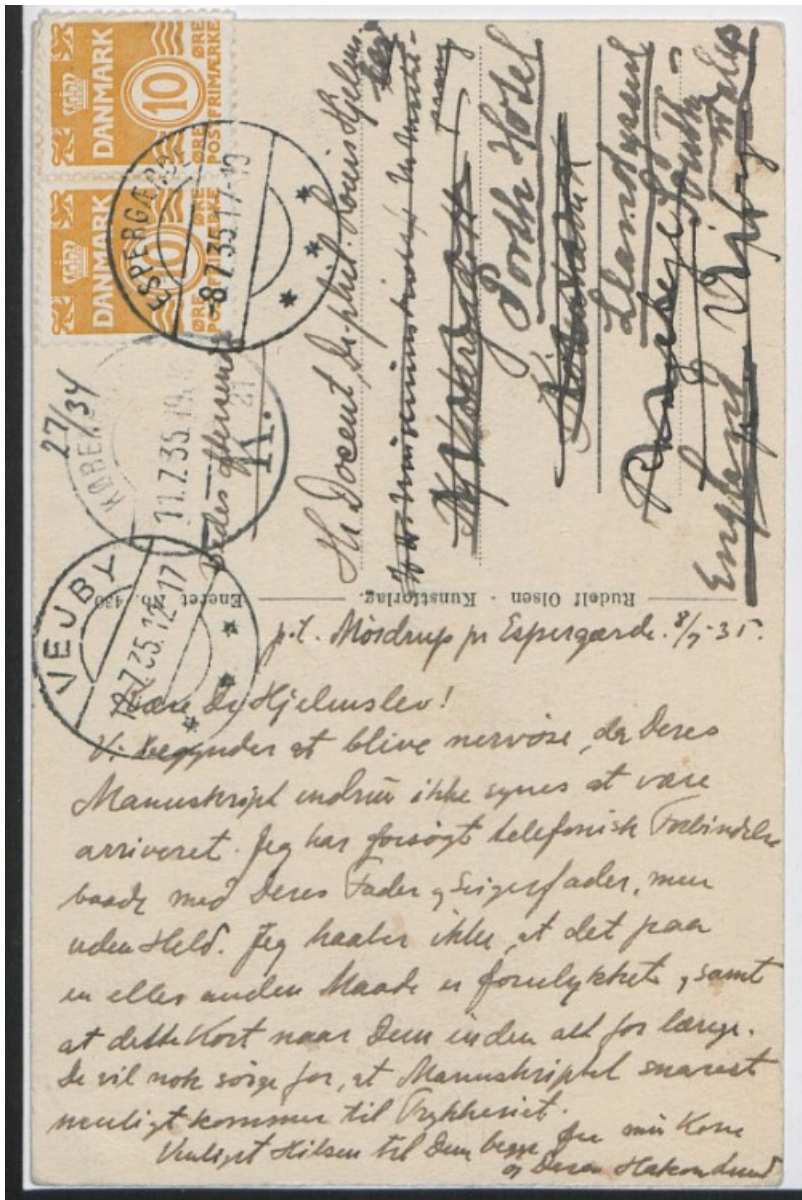 DANMARK
10
ØRE
POSTFRIMÆRKE
DANMARK
10
ØRE
POSTFRIMÆRKE
ESPERGÆRDE
-8.7.35.17-19
27/34
KØBENH
11.7.35.19
K.
VEJBY
12.7.35.12-17
Bedes eftersendt
Hr Docent, Dr. phil. Louis Hjelmslev
Porth Hotel
Llandyssul
South-Wales
England Vejby
Rudolf Olsen - Kunstforlag. Eneret No. 430
p.t. Mørdrup pr Espergærde. 8/7-35.
Kære Dr Hjelmslev!
Vi begynder at blive nervøse, da Deres
Manuskript endnu ikke synes at være
arriveret. Jeg har forsøgt telefonisk Forbindelse
baade med Deres Fader og Svigerfader, men
uden Held. Jeg haaber ikke, at det paa
en eller anden Maade er forulykket, samt
at dette Kort naar Dem inden alt for længe.
De vil nok sørge for, at Manuskriptet snarest
muligt kommer til Trykkeriet.
Venligst Hilsen til Dem begge fra min Kone
og Deres Hakon Lund